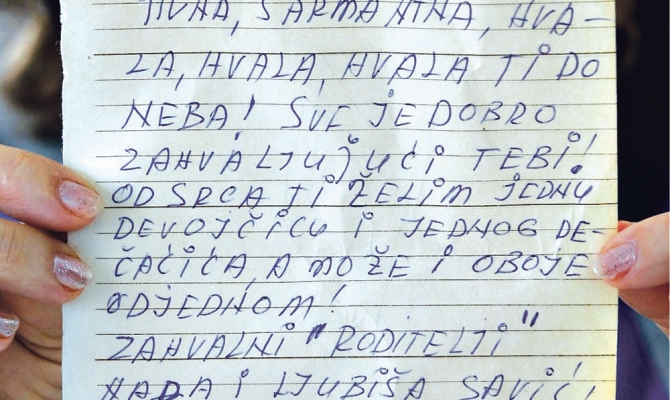 ŠARMANTNA, HVA-
LA, HVALA, HVALA TI DO
NEBA! SVE JE DOBRO
ZAHVALJUJUĆI TEBI!
OD SRCA TI ŽELIM JEDNU
DEVOJČICU I JEDNOG DE-
ČAĆIĆA, A MOŽE I OBOJE
ODJEDNOM!
ZAHVALNI "RODITELJI"
NADA I LJUBIŠA SAVIĆ